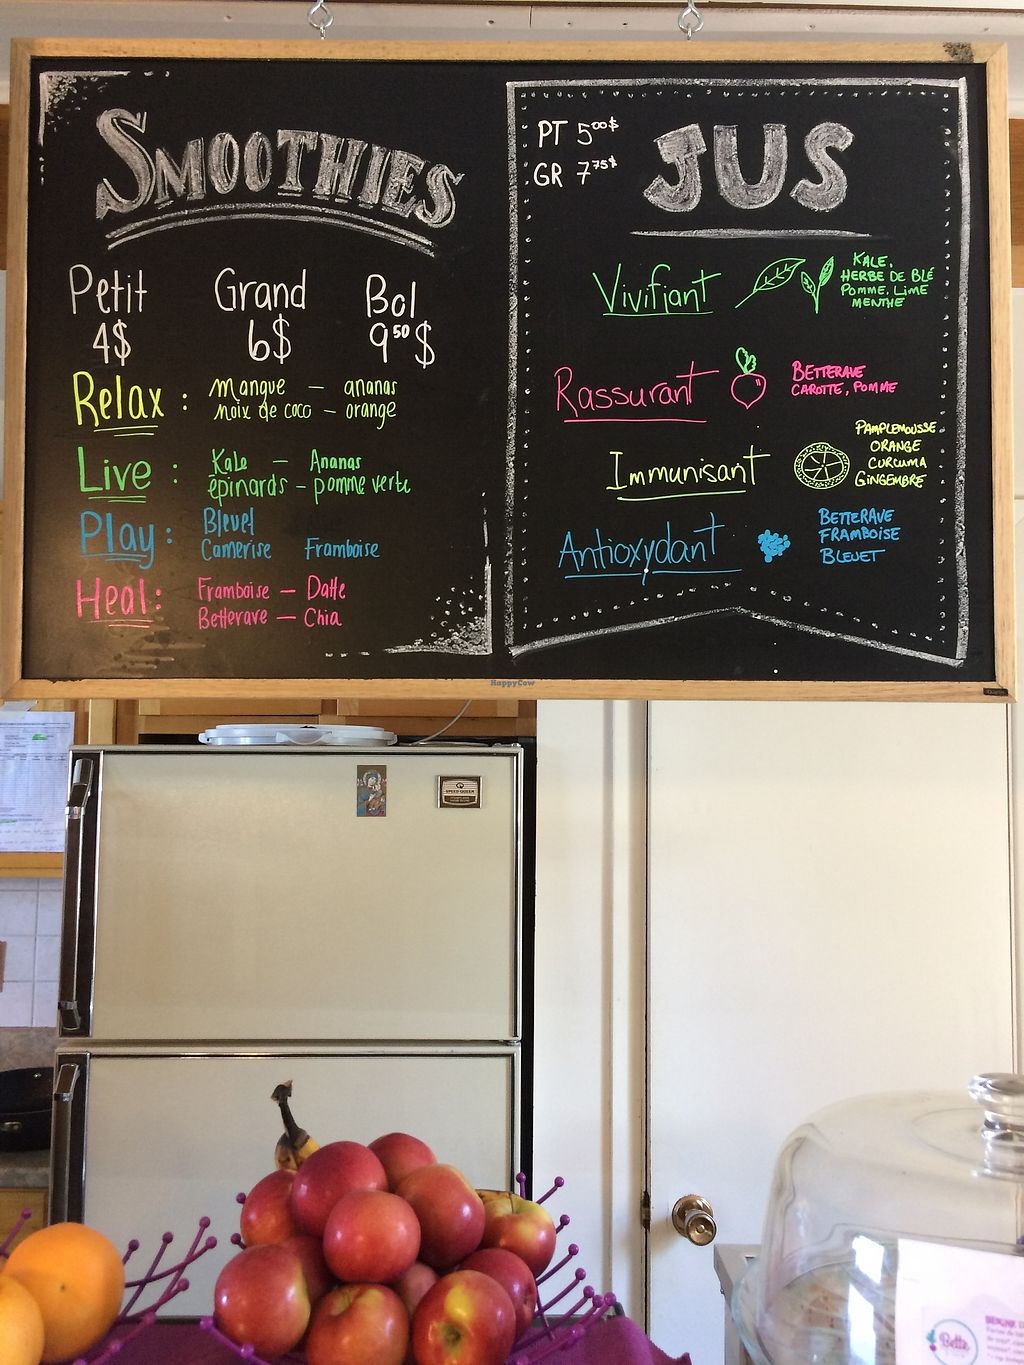 SMOOTHIES
Petit Grand Bol
4$ 6$ 9⁵⁰$
Relax : mangue — ananas
noix de coco — orange
Live : Kale — Ananas
épinards — pomme verte
Play : Bleuet
Camerise Framboise
Heal : Framboise — Datte
Betterave — Chia
PT 5⁰⁰$
GR 7⁷⁵$
JUS
Vivifiant
KALE,
HERBE DE BLÉ
POMME, LIME
MENTHE
Rassurant
BETTERAVE
CAROTTE, POMME
Immunisant
PAMPLEMOUSSE
ORANGE
CURCUMA
GINGEMBRE
Antioxydant
BETTERAVE
FRAMBOISE
BLEUET
HappyCow
SPEED QUEEN
Bette